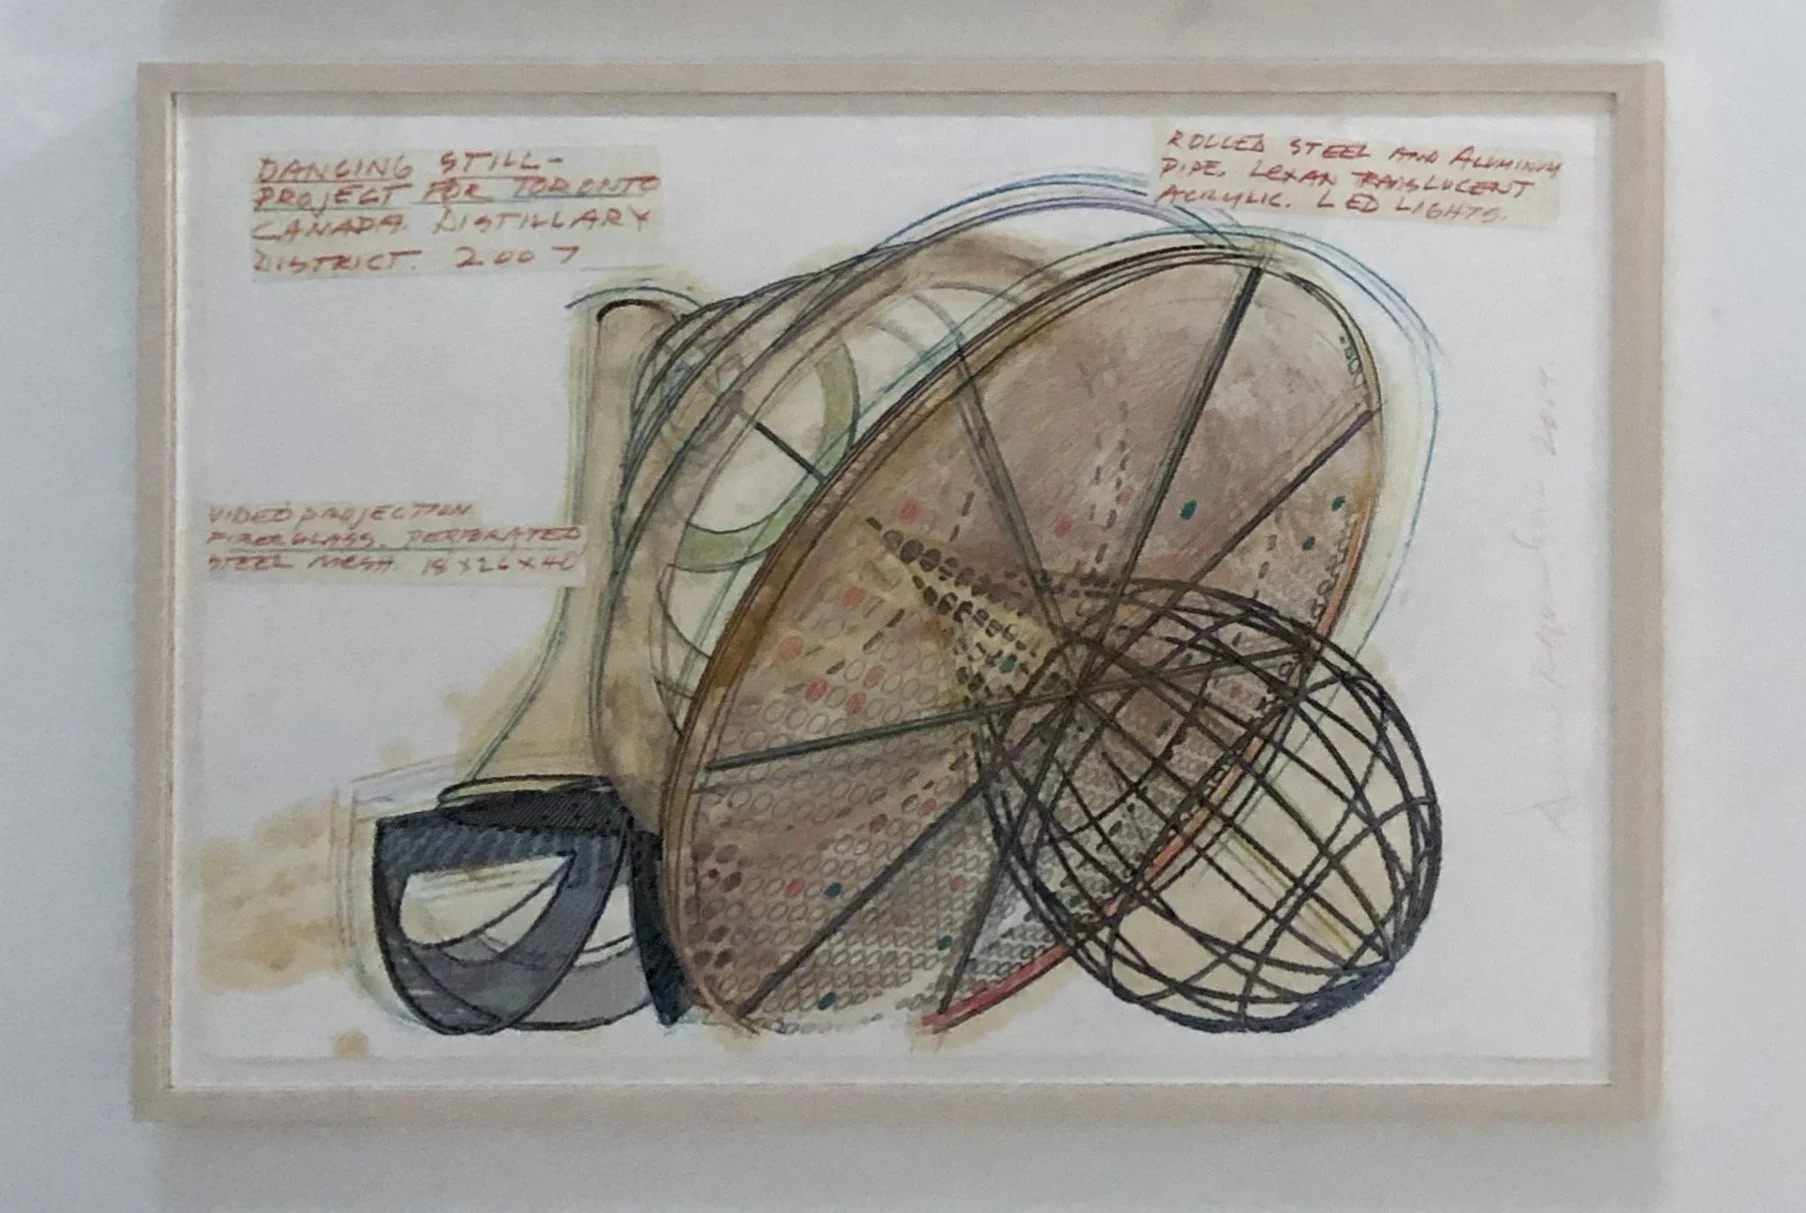 DANCING STILL-
PROJECT FOR TORONTO
CANADA. DISTILLARY
DISTRICT. 2007
ROLLED STEEL AND ALUMINUM
PIPE. LEXAN TRANSLUCENT
ACRYLIC. LED LIGHTS.
VIDEO PROJECTION
FIBERGLASS. PERFORATED
STEEL MESH. 18 X 26 X 40